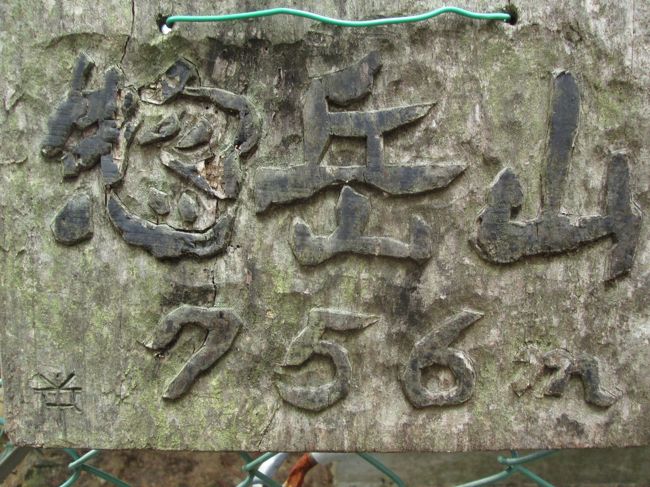 惣岳山
756m